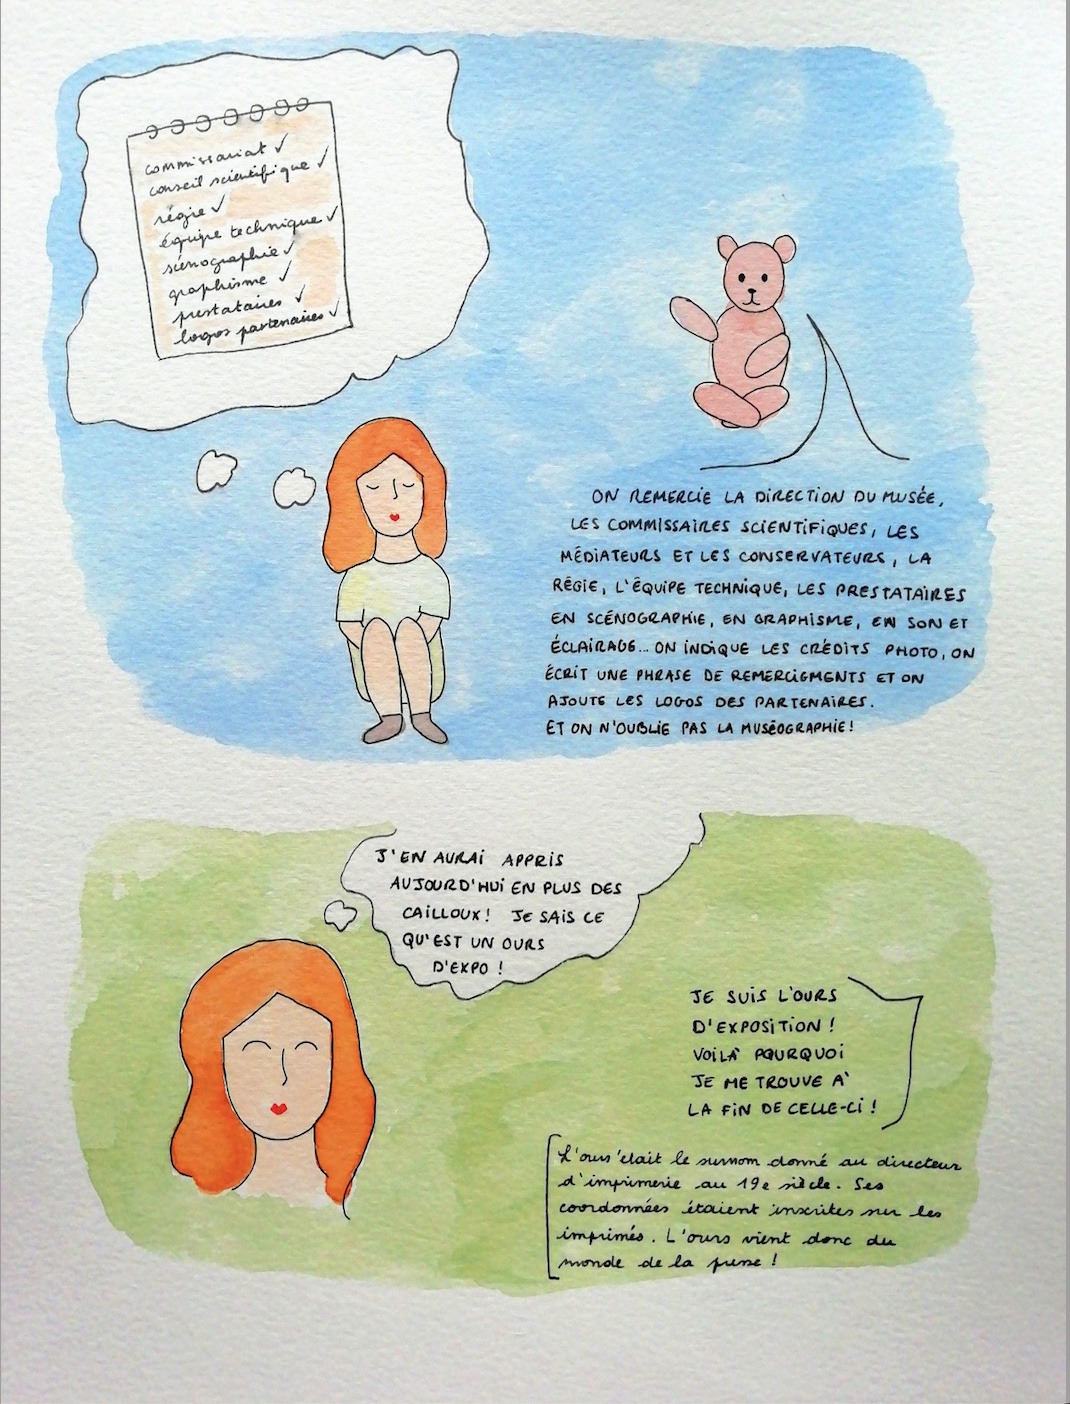 commissariat ✓
conseil scientifique ✓
régie ✓
équipe technique ✓
scénographie ✓
graphisme ✓
prestataires ✓
logos partenaires ✓
ON REMERCIE LA DIRECTION DU MUSÉE,
LES COMMISSAIRES SCIENTIFIQUES, LES
MÉDIATEURS ET LES CONSERVATEURS, LA
RÉGIE, L'ÉQUIPE TECHNIQUE, LES PRESTATAIRES
EN SCÉNOGRAPHIE, EN GRAPHISME, EN SON ET
ÉCLAIRAGE... ON INDIQUE LES CRÉDITS PHOTO, ON
ÉCRIT UNE PHRASE DE REMERCIEMENTS ET ON
AJOUTE LES LOGOS DES PARTENAIRES.
ET ON N'OUBLIE PAS LA MUSÉOGRAPHIE!
J'EN AURAI APPRIS
AUJOURD'HUI EN PLUS DES
CAILLOUX! JE SAIS CE
QU'EST UN OURS
D'EXPO!
JE SUIS L'OURS
D'EXPOSITION!
VOILÀ POURQUOI
JE ME TROUVE À
LA FIN DE CELLE-CI!
L'ours était le surnom donné au directeur
d'imprimerie au 19e siècle. Ses
coordonnées étaient inscrites sur les
imprimés. L'ours vient donc du
monde de la presse!